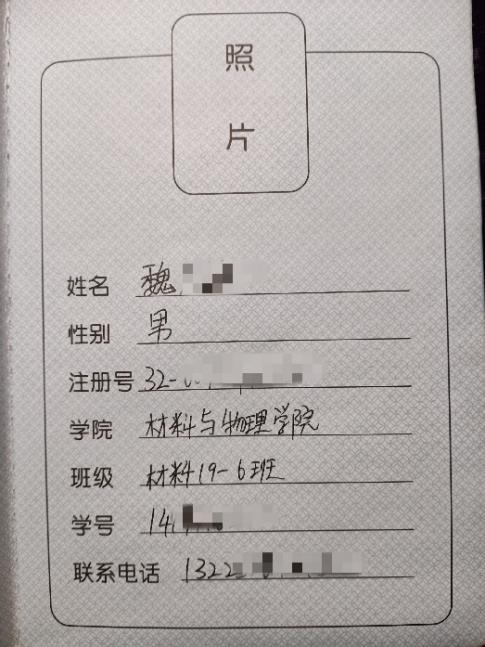 照
片
姓名 魏
性别 男
注册号 32-
学院 材料与物理学院
班级 材料19-6班
学号 14
联系电话 1322